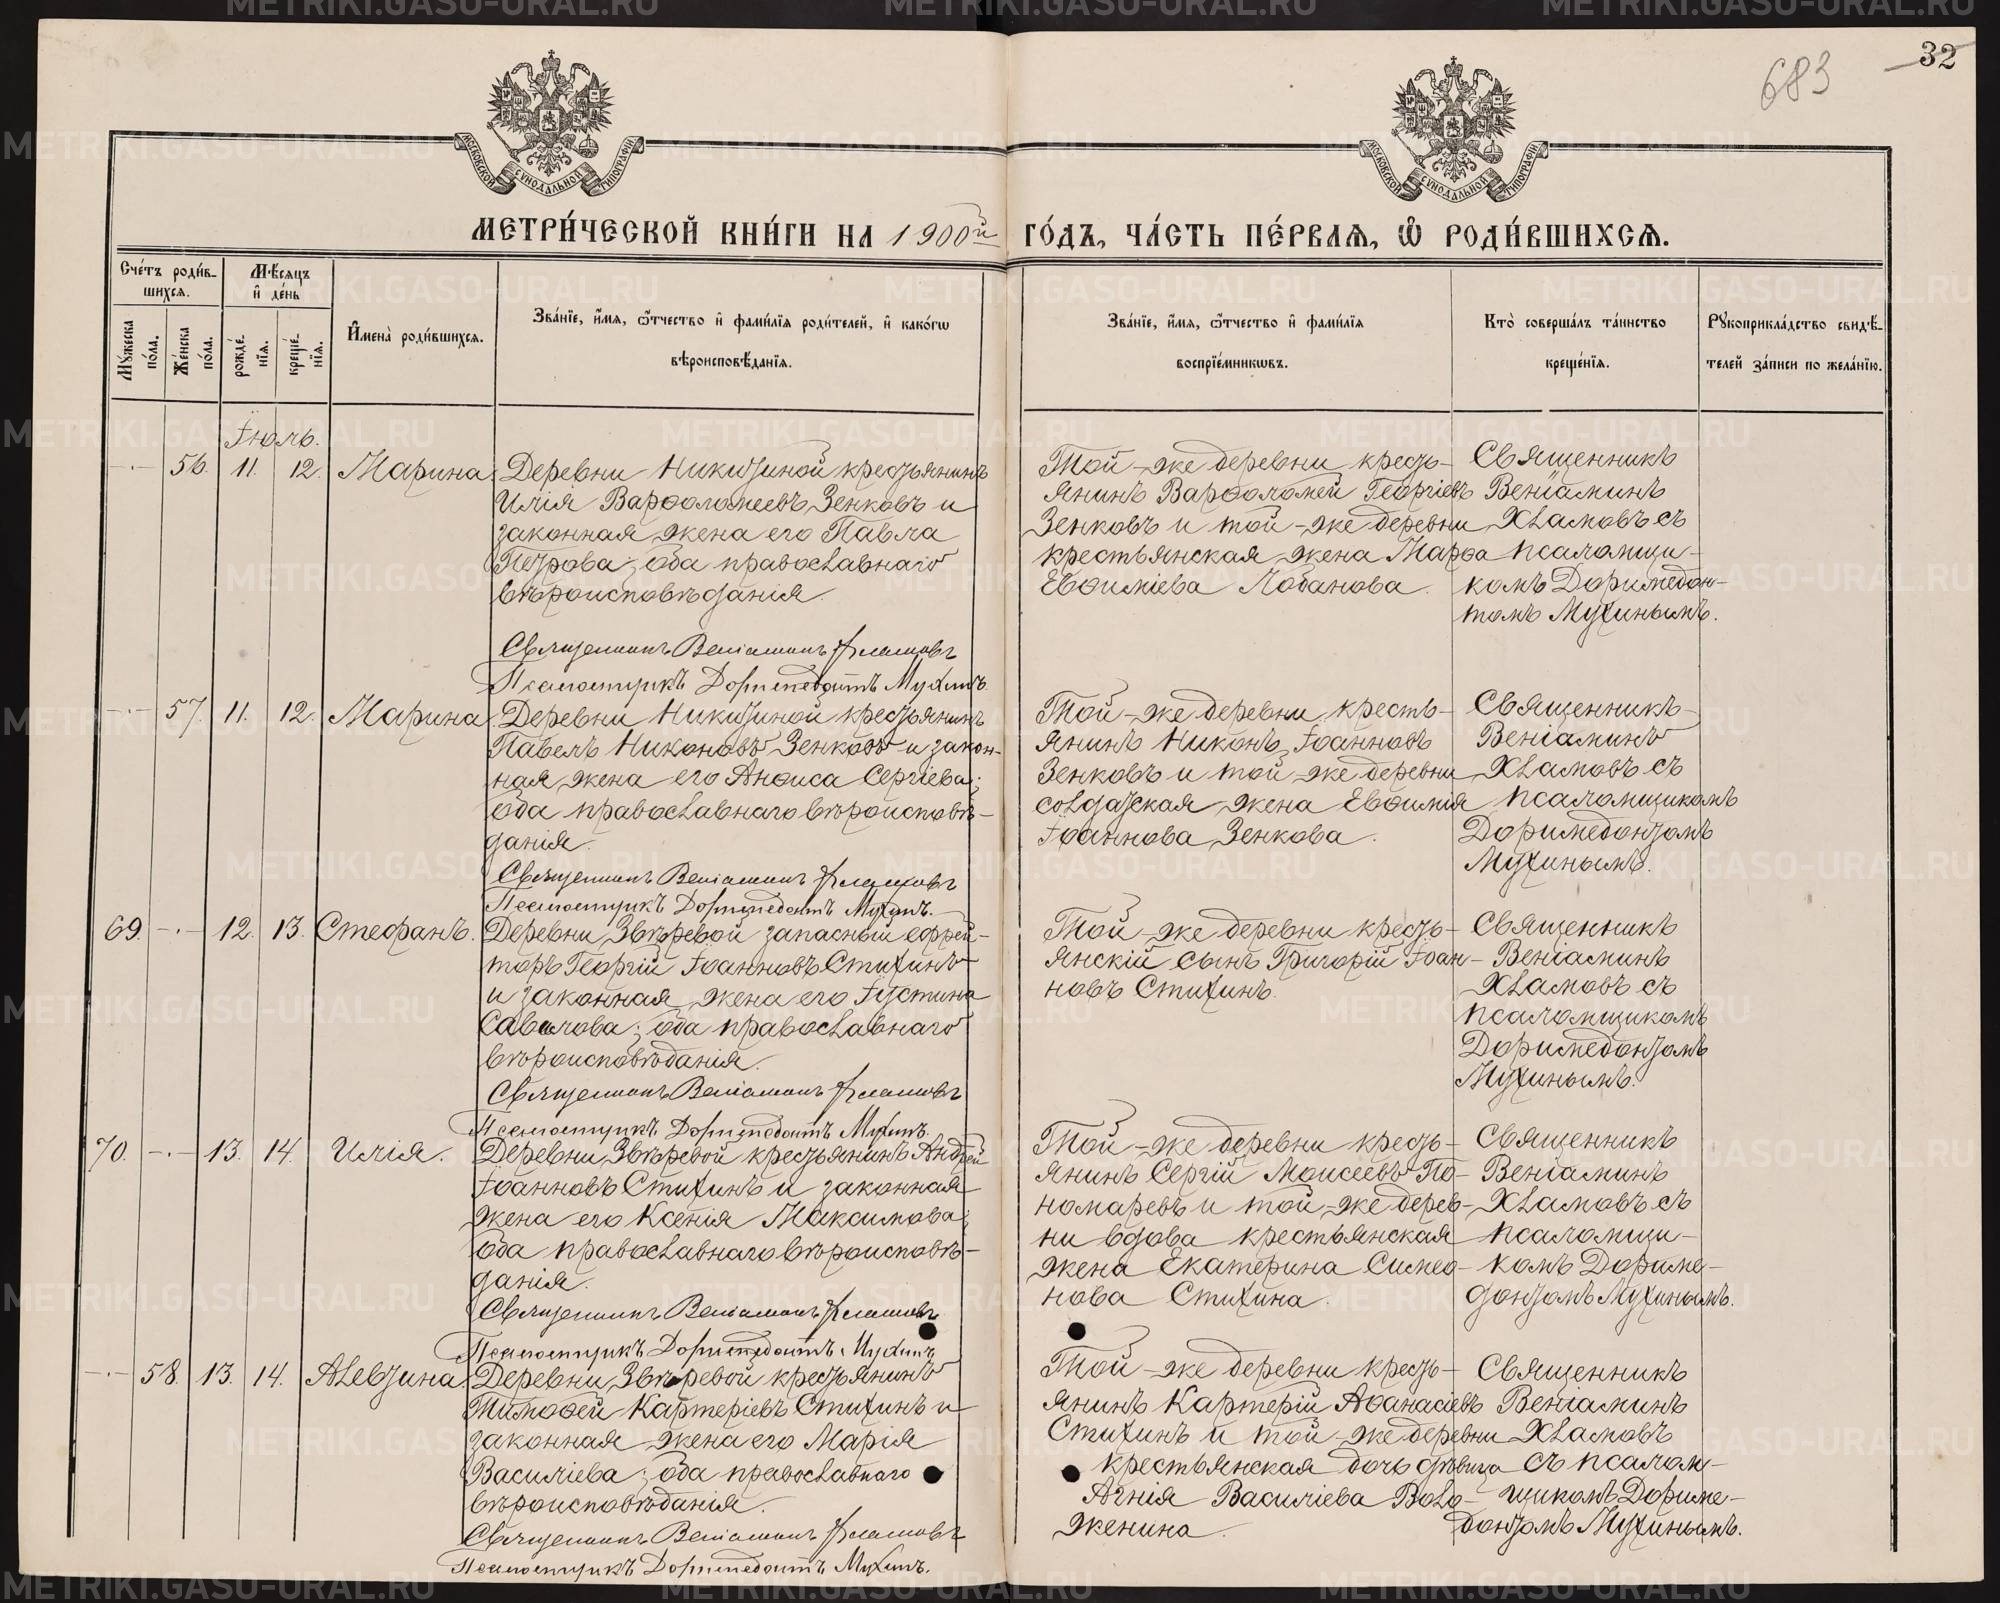 683
32
МОСКОВСКОЙ СѴНОДАЛЬНОЙ ТИПОГРАФІИ
МОСКОВСКОЙ СѴНОДАЛЬНОЙ ТИПОГРАФІИ
МЕТРИ́ЧЕСКОЙ КНИ́ГИ НА 1900й ГО́ДЪ, ЧА́СТЬ ПЕ́РВАѦ, Ѽ РОДИ́ВШИХСѦ.
Сче́тъ роди́в-
шихсѧ.
Мѣ́сѧцъ
и҆ де́нь
Мꙋ́жеска
по́ла.
Же́нска
по́ла.
рожде́-
нїѧ.
креще́-
нїѧ.
И҆мена̀ роди́вшихсѧ.
Зва́нїе, и҆́мѧ, ѻ҆́тчество и҆ фами́лїѧ роди́телей, и҆ како́гѡ
вѣроисповѣ́данїѧ.
Зва́нїе, и҆́мѧ, ѻ҆́тчество и҆ фами́лїѧ
воспрїе́мникѡвъ.
Кто̀ соверша́лъ та́инство
креще́нїѧ.
Рꙋкоприкла́дство свидѣ́-
телей за́писи по жела́нїю.
Іюль.
-·- 56. 11. 12. Марина
Деревни Никитиной крестьянинъ
Илія Варѳоломеевъ Зенковъ и
законная жена его Павла
Петрова; оба православнаго
вѣроисповѣданія.
Священникъ Веніаминъ Хламовъ
Псаломщикъ Доримедонтъ Мухинъ.
Той-же деревни кресть-
янинъ Варѳоломей Георгіевъ
Зенковъ и той-же деревни
крестьянская жена Марѳа
Евѳиміева Лобанова.
Священникъ
Веніаминъ
Хламовъ съ
псаломщи-
комъ Доримедон-
томъ Мухинымъ.
-·- 57. 11. 12. Марина
Деревни Никитиной крестьянинъ
Павелъ Никоновъ Зенковъ и закон-
ная жена его Анѳиса Сергіева;
оба православнаго вѣроисповѣ-
данія.
Священникъ Веніаминъ Хламовъ
Псаломщикъ Доримедонтъ Мухинъ.
Той-же деревни кресть-
янинъ Никонъ Іоанновъ
Зенковъ и той-же деревни
солдатская жена Евѳимія
Іоаннова Зенкова.
Священникъ
Веніаминъ
Хламовъ съ
псаломщикомъ
Доримедонтомъ
Мухинымъ.
69. -·- 12. 13. Стефанъ.
Деревни Звѣревой запасный ефрей-
торъ Георгій Іоанновъ Стихинъ
и законная жена его Іустина
Савилова; оба православнаго
вѣроисповѣданія.
Священникъ Веніаминъ Хламовъ
Псаломщикъ Доримедонтъ Мухинъ.
Той-же деревни кресть-
янскій сынъ Григорій Іоан-
новъ Стихинъ.
Священникъ
Веніаминъ
Хламовъ съ
псаломщикомъ
Доримедонтомъ
Мухинымъ.
70. -·- 13. 14. Илія.
Деревни Звѣревой крестьянинъ Андрей
Іоанновъ Стихинъ и законная
жена его Ксенія Максимова;
оба православнаго вѣроисповѣ-
данія.
Священникъ Веніаминъ Хламовъ
Псаломщикъ Доримедонтъ Мухинъ
Той-же деревни кресть-
янинъ Сергій Моисеевъ По-
номаревъ и той-же дерев-
ни вдова крестьянская
жена Екатерина Симео-
нова Стихина.
Священникъ
Веніаминъ
Хламовъ съ
псаломщи-
комъ Дориме-
донтомъ Мухинымъ.
-·- 58. 13. 14. Алевтина.
Деревни Звѣревой крестьянинъ
Тимоѳей Картеріевъ Стихинъ и
законная жена его Марія
Василіева; оба православнаго
вѣроисповѣданія.
Священникъ Веніаминъ Хламовъ
Псаломщикъ Доримедонтъ Мухинъ.
Той-же деревни кресть-
янинъ Картерій Аѳанасіевъ
Стихинъ и той-же деревни
крестьянская дочь дѣвица
Агнія Василіева Воло-
женина.
Священникъ
Веніаминъ
Хламовъ
съ псалом-
щикомъ Дориме-
донтомъ Мухинымъ.